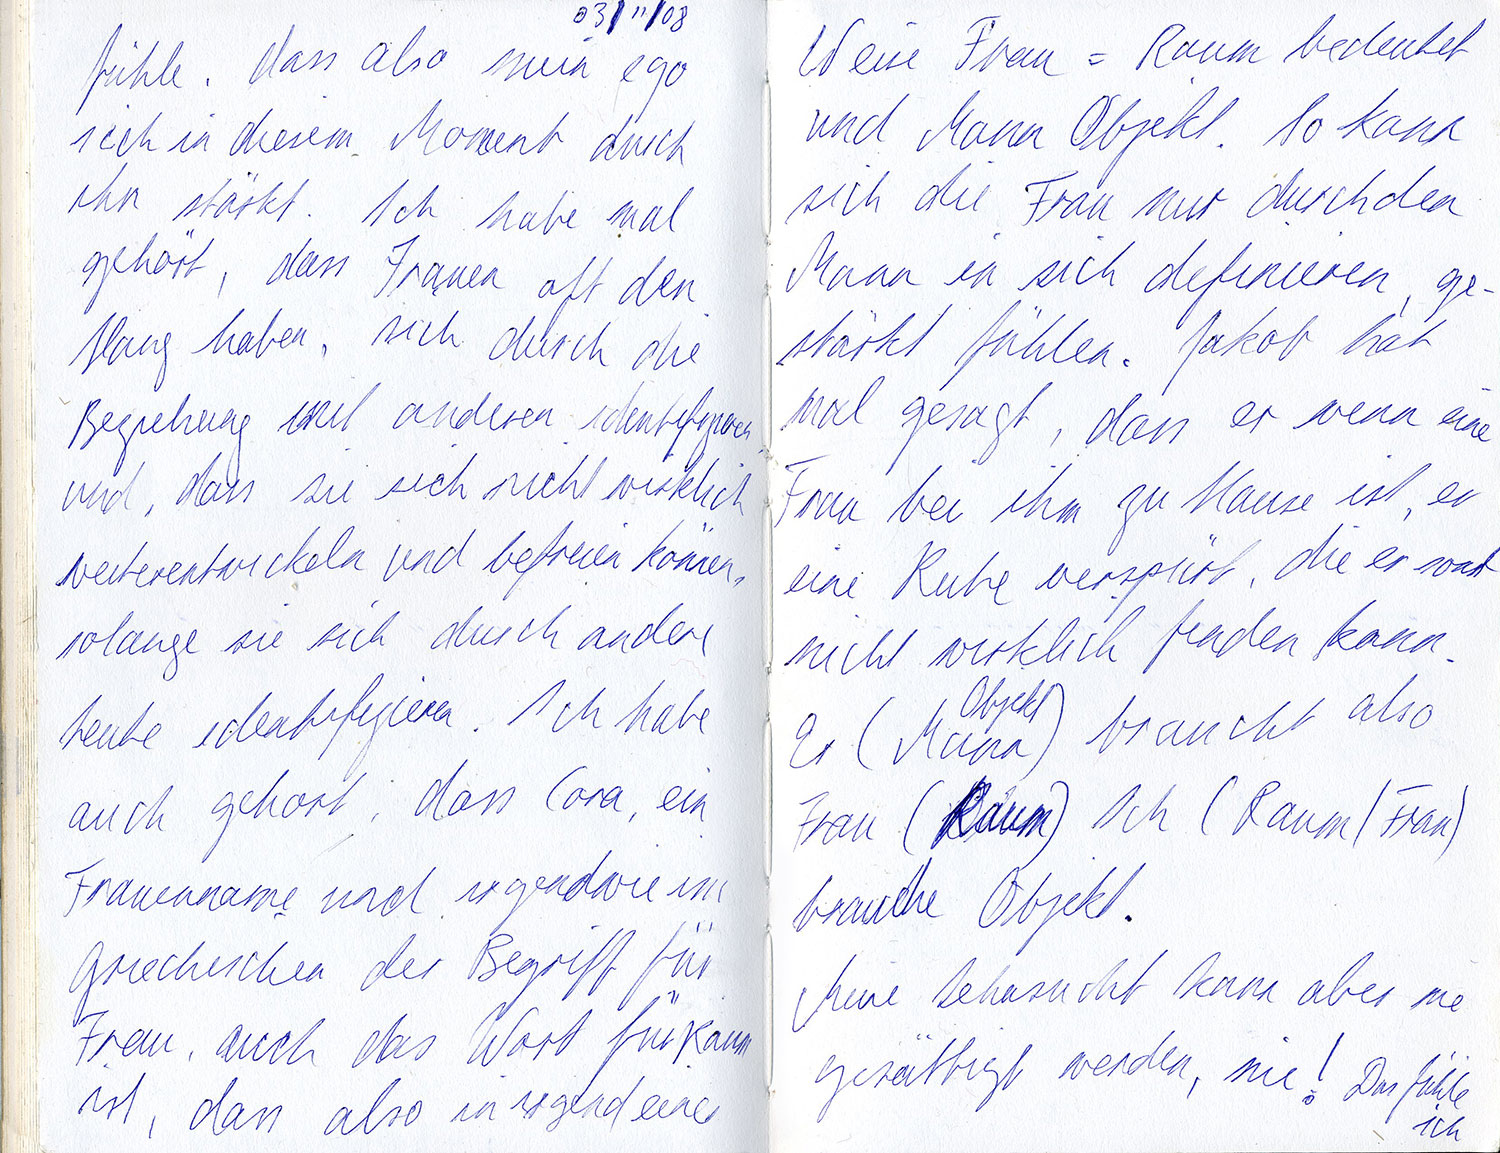 03/11/08
fühle. Dass also mein ego
sich in diesem Moment durch
ihn stärkt. Ich habe mal
gehört, dass Frauen oft den
Hang haben, sich durch die
Beziehung mit anderen identifizieren
und, dass sie sich nicht wirklich
weiterentwickeln und befreien können,
solange sie sich durch andere
Leute identifizieren. Ich habe
auch gehört, dass Cora, ein
Frauenname und irgendwie im
Griechischen der Begriff für
Frau, auch das Wort für Raum
ist, dass also in irgendeiner
Weise Frau = Raum bedeutet
und Mann Objekt. So kann
sich die Frau nur durch den
Mann in sich definieren, ge-
stärkt fühlen. Jakob hat
mal gesagt, dass er wenn eine
Frau bei ihm zu Hause ist, er
eine Ruhe verspürt, die er sonst
nicht wirklich finden kann.
Objekt
Er (Mann) braucht also
Frau (Raum) Ich (Raum/Frau)
brauche Objekt.
Meine Sehnsucht kann aber nie
gesättigt werden, nie! Das fühle
ich